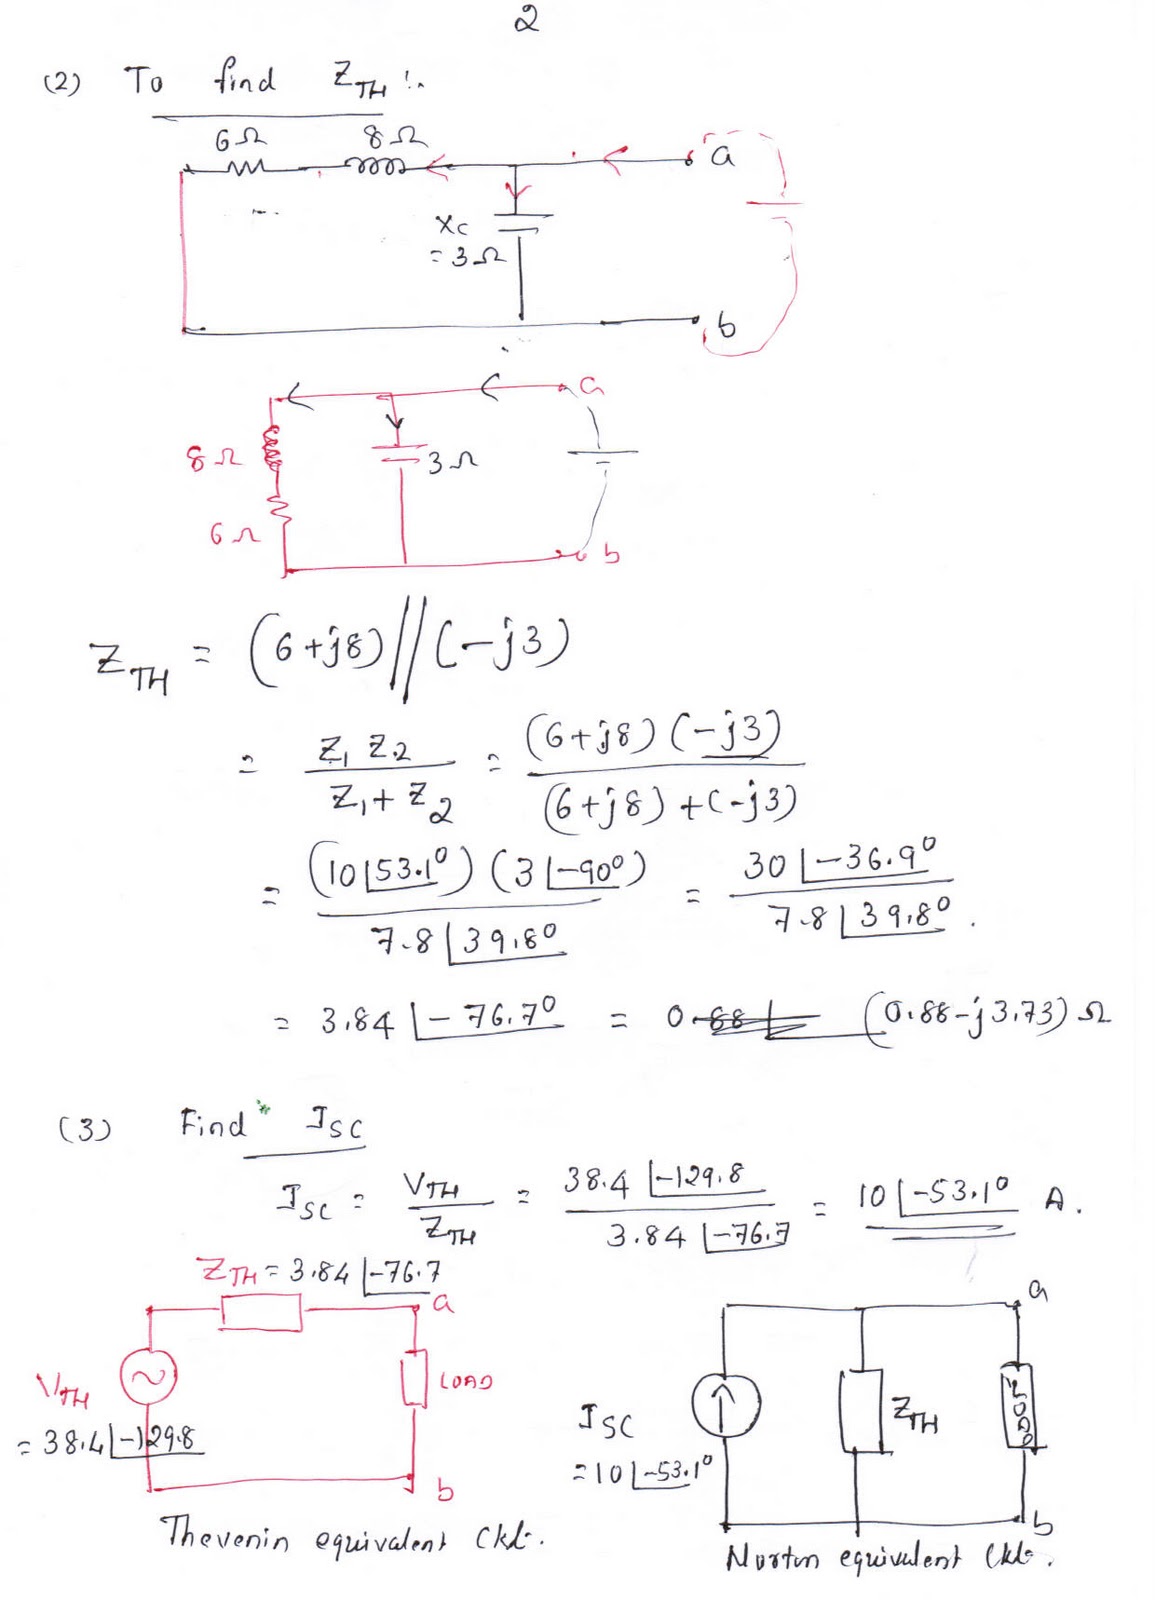 2
(2) To find Z_TH :.
6Ω 8Ω
a
X_C
= 3Ω
b
a
8Ω
3Ω
6Ω
b
Z_TH = (6+j8) // (-j3)
= Z_1 Z_2 / (Z_1 + Z_2) = (6+j8) (-j3) / ((6+j8) + (-j3))
= (10∠53.1°) (3∠-90°) / 7.8∠39.8° = 30∠-36.9° / 7.8∠39.8° .
= 3.84∠-76.7° = 0.88∠ (0.88-j3.73) Ω
(3) Find I_SC
I_SC = V_TH / Z_TH = 38.4∠-129.8 / 3.84∠-76.7 = 10∠-53.1° A.
Z_TH = 3.84∠-76.7
a
V_TH
= 38.4∠-129.8
LOAD
b
Thevenin equivalent Ckt.
a
I_SC
= 10∠-53.1°
Z_TH
LOAD
b
Norton equivalent Ckt.